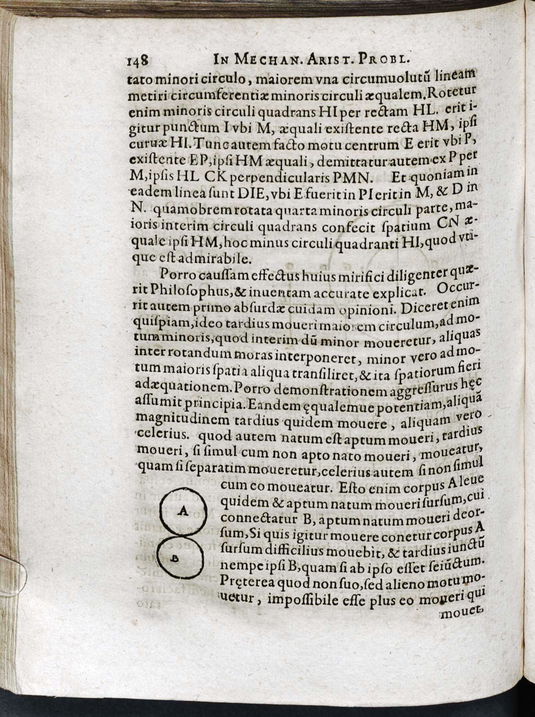 148 IN MECHAN. ARIST. PROBL.
tato minori circulo, maiorem vna circumuolutũ lineam
metiri circumferentiæ minoris circuli æqualem. Rotetur
enim minoris circuli quadrans HI per rectam HL. erit i-
gitur punctum I vbi M, æquali existente recta HM, ipsi
curuæ HI. Tunc autem facto motu centrum E erit vbi P,
existente EP, ipsi HM æquali, demittatur autem ex P per
M, ipsis HL CK perpendicularis PMN. Et quoniam in
eadem linea sunt DIE, vbi E fuerit in P I erit in M, & D in
N. quamobrem rotata quarta minoris circuli parte, ma-
ioris interim circuli quadrans confecit spatium CN æ-
quale ipsi HM, hoc minus circuli quadranti HI, quod vti-
que est admirabile.
Porro caussam effectus huius mirifici diligenter quæ-
rit Philosophus, & inuentam accurate explicat. Occur-
rit autem primo absurdæ cuidam opinioni. Diceret enim
quispiam, ideo tardius moueri maiorem circulum, ad mo-
tum minoris, quod interim dũ minor moueretur, aliquas
inter rotandum moras interponeret, minor vero ad mo-
tum maioris spatia aliqua transiliret, & ita spatiorum fieri
adæquationem. Porro demonstrationem aggressurus hęc
assumit principia. Eandem ęqualemue potentiam, aliquã
magnitudinem tardius quidem mouere, aliquam vero
celerius. quod autem natum est aptum moueri, tardius
moueri, si simul cum non apto nato moueri, moueatur,
quam si separatim moueretur, celerius autem si non simul
cum eo moueatur. Esto enim corpus A leue
quidem & aptum natum moueri sursum, cui
connectatur B, aptum natum moueri deor-
sum, Si quis igitur mouere conetur corpus A
sursum difficilius mouebit, & tardius iunctũ
nempe ipsi B, quam si ab ipso esset seiũctum.
Pręterea quod non suo, sed alieno motu mo-
uetur, impossibile esse plus eo moueri qui
mouet,
A
B